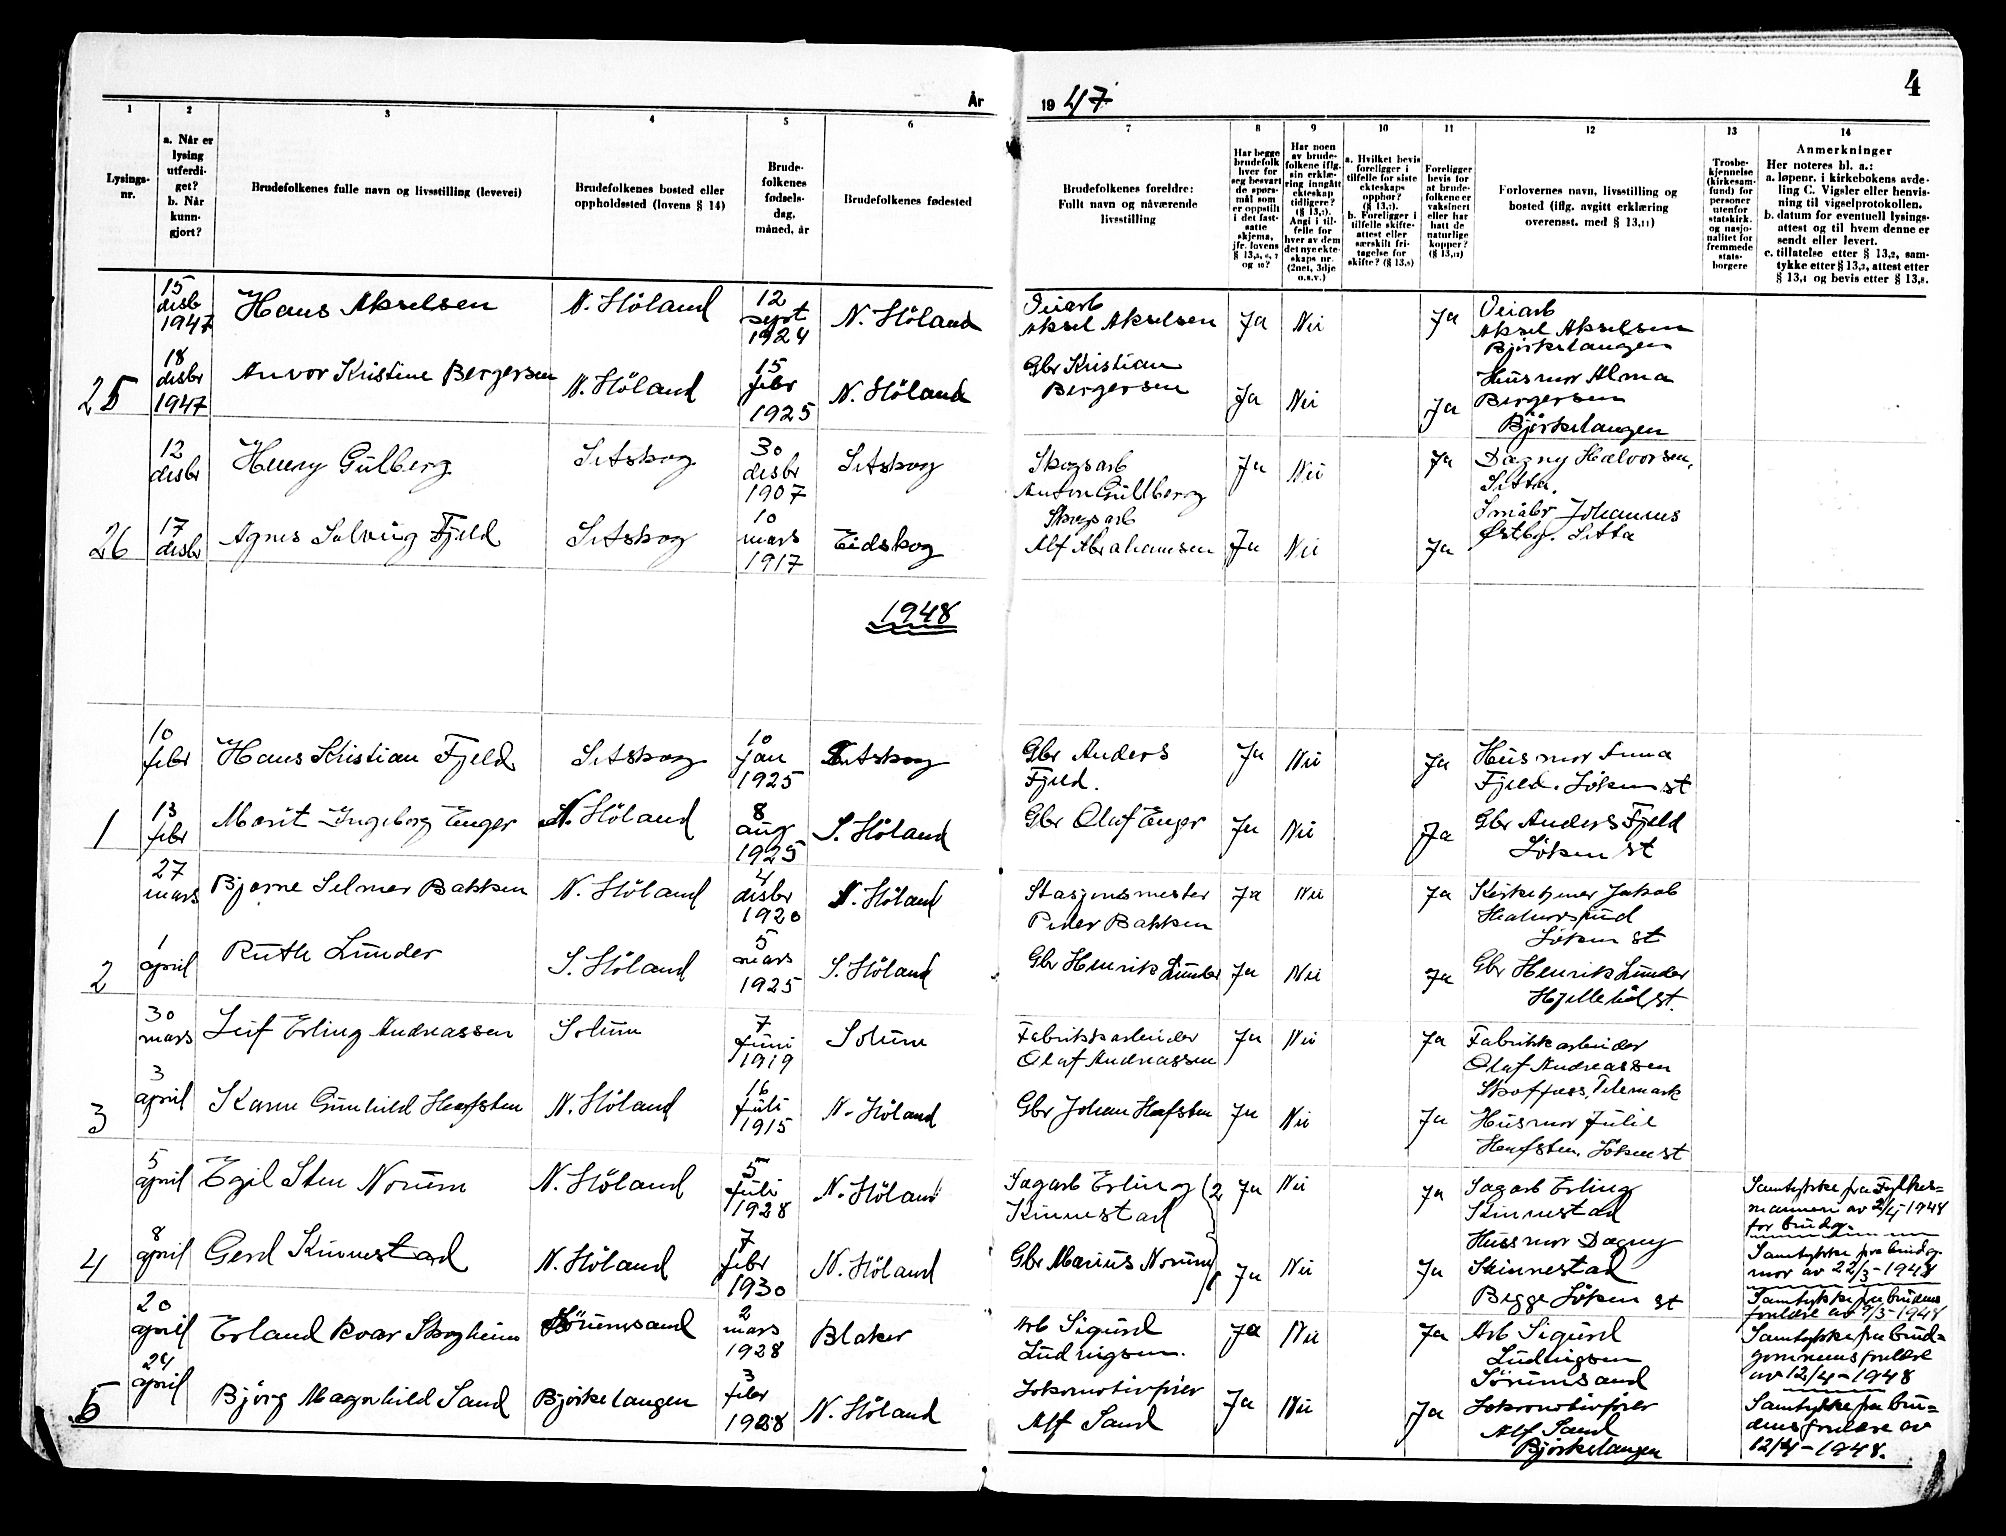 År 1947
4
1 2 3 4 5 6 7 8 9 10 11 12 13 14
Lysings-
nr.
a. Når er
lysing
utferdi-
get?
b. Når
kunn-
gjort?
Brudefolkenes fulle navn og livsstilling (levevei)
Brudefolkenes bosted eller
oppholdssted (lovens § 14)
Brude-
folkenes
fødsels-
dag,
måned, år
Brudefolkenes fødested
Brudefolkenes foreldre:
Fullt navn og nåværende
livsstilling
Har begge
brudefolk
hver for
seg besvart
de spørs-
mål som
er oppstilt
i det fast-
satte
skjema,
jfr. lovens
og 10?
Har noen
av brude-
folkene iflg.
sin erklæ-
ring inngått
ekteskap
tidligere?
(§ 13,7).
Angi i til-
felle for
hver av dem
det nye ekte-
skaps nr.
(2net, 3dje
o.s.v.)
a. Hvilket bevis
foreligger i
tilfelle for siste
ekteskaps
opphør?
(§ 13,7).
b. Foreligger i
tilfelle skifte-
attest eller
særskilt fri-
tagelse for
skifte? (§ 13,8)
Foreligger
bevis for
at brude-
folkene er
vaksinert
eller har
hatt de
naturlige
kopper?
(§ 13,12)
Forlovernes navn, livsstilling og
bosted (iflg. avgitt erklæring
overensst. med § 13,11)
Trosbe-
kjennelse
(kirkesam-
fund) for
personer
utenfor
statskirk.
og nasjo-
nalitet for
fremmede
stats-
borgere
Anmerkninger
Her noteres bl. a.:
a. løpenr. i kirkebokens avde-
ling C. Vigsler eller henvis-
ning til vigselprotokollen.
b. datum for eventuell lysings-
attest og til hvem denne er
sendt eller levert.
c. tillatelse etter § 13,2, sam-
tykke etter § 13,3, attest etter
§ 13,4 og bevis etter § 13,8.
15 disbr 1947 Hans Akselsen N. Höland 12 sept 1924 N. Höland Veiarb Aksel Akselsen Ja Nei Ja Veiarb Aksel Akselsen Björkelangen
25 18 disbr 1947 Anvor Kristine Bergersen N. Höland 15 febr 1925 N. Höland Gbr Kristian Bergersen Ja Nei Ja Husmor Alma Bergersen Björkelangen
12 disbr Henry Gulberg Setskog 30 disbr 1907 Setskog Skogsarb Anton Gullberg Ja Nei Ja Dagny Halvorsen, Setta.
26 17 disbr Agnes Solveig Fjeld Setskog 10 mars 1917 Eidskog Skogsarb Alf Abrahamsen Ja Nei Ja Småbr Johannes Østby. Setta
1948
10 febr Hans Kristian Fjeld Setskog 10 jan 1925 Setskog Gbr Anders Fjeld. Ja Nei Ja Husmor Anna Fjeld. Löken st
1 13 febr Marit Ingeborg Enger N. Höland 8 aug 1925 S. Höland Gbr Olaf Enger Ja Nei Ja Gbr Anders Fjeld Löken st
27 mars Bjarne Selmer Bakken N. Höland 4 disbr 1920 N. Höland Stasjonsmester Peder Bakken Ja Nei Ja Kirketjener Jakob Löken st
2 1 april Ruth Lunder S. Höland 5 mars 1925 S. Höland Gbr Henrik Lunder Ja Nei Ja Gbr Henrik Lunder Hjellebøl st.
30 mars Leif Erling Andreassen Solum 7 juni 1919 Solum Fabrikkarbeider Olaf Andreassen Ja Nei Ja Fabrikkarbeider Olaf Andreassen Skotfoss, Telemark
3 3 april Karen Gunhild Hafsten N. Höland 16 juli 1915 N. Höland Gbr Johan Hafsten Ja Nei Ja Husmor Julie Hafsten, Löken st
5 april Egil Sten Norum N. Höland 5 juli 1928 N. Höland Sagarb Erling Kinnestad 2 Ja Nei Ja Sagarb Erling Kinnestad Samtykke fra Fylkes-
mannen av 2/4-1948
for brudg.
4 8 april Gerd Kinnestad N. Höland 7 febr 1930 N. Höland Gbr Marius Norum 1 Ja Nei Ja Husmor Dagny Skinnestad Begge Löken st Samtykke fra brudg.
mor av 22/3-1948
Samtykke fra brudens
foreldre av 9/3-1948
20 april Erland Roar Skogheim Sörumsand 2 mars 1928 Blaker Arb Sigurd Ludvigsen. Ja Nei Ja Arb Sigurd Ludvigsen Sörumsand Samtykke fra brud=
gommens foreldre
av 12/4-1948
5 24 april Björg Magnhild Sand Björkelangen 3 febr 1928 N. Höland Lokomotivfører Alf Sand Ja Nei Ja Lokomotivfører Alf Sand Björkelangen Samtykke fra bru=
dens foreldre av
12/4-1948.